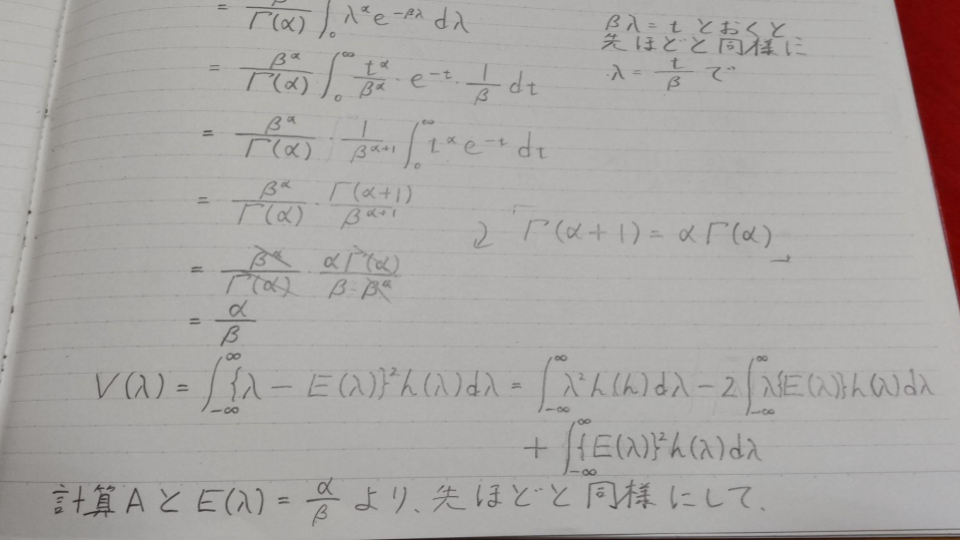 = β^α/Γ(α) ∫₀ λ^α e^{-βλ} dλ
βλ = t とおくと
先ほどと同様に
= β^α/Γ(α) ∫₀^∞ t^α/β^α · e^{-t} · 1/β dt
λ = t/β で
= β^α/Γ(α) · 1/β^{α+1} ∫₀^∞ t^α e^{-t} dt
= β^α/Γ(α) · Γ(α+1)/β^{α+1}
「Γ(α+1) = αΓ(α)」
= β^α/Γ(α) · αΓ(α)/β·β^α
= α/β
V(λ) = ∫_{-∞}^∞ {λ - E(λ)}² h(λ)dλ = ∫_{-∞}^∞ λ² h(h)dλ - 2∫_{-∞}^∞ λ{E(λ)}h(λ)dλ
+ ∫_{-∞}^∞ {E(λ)}² h(λ)dλ
計算AとE(λ) = α/β より、先ほどと同様にして、